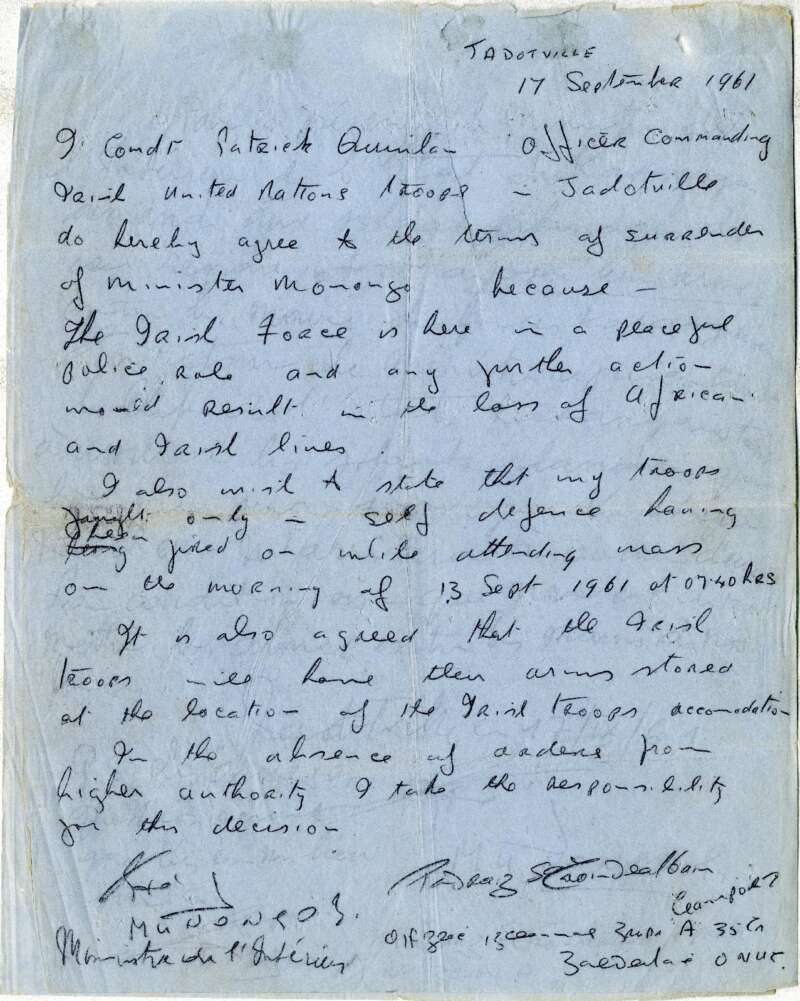 JADOTVILLE
17 September 1961
I Comdt Patrick Quinlan Officer Commanding
Irish United Nations troops in Jadotville
do hereby agree to the terms of surrender
of Minister Monongo because —
The Irish Force is here in a peaceful
police role and any further action
would result in the loss of African
and Irish lives.
I also wish to state that my troops
fought only in self defence having
been fired on while attending mass
on the morning of 13 Sept 1961 at 07.40 hrs
It is also agreed that the Irish
troops will have their arms stored
at the location of the Irish troops accomodation
In the absence of orders from
higher authority I take the responsibility
for this decision.
MUNONGO G.
Ministre de l'Intérieur
Pádraig
A 35
ONUC.